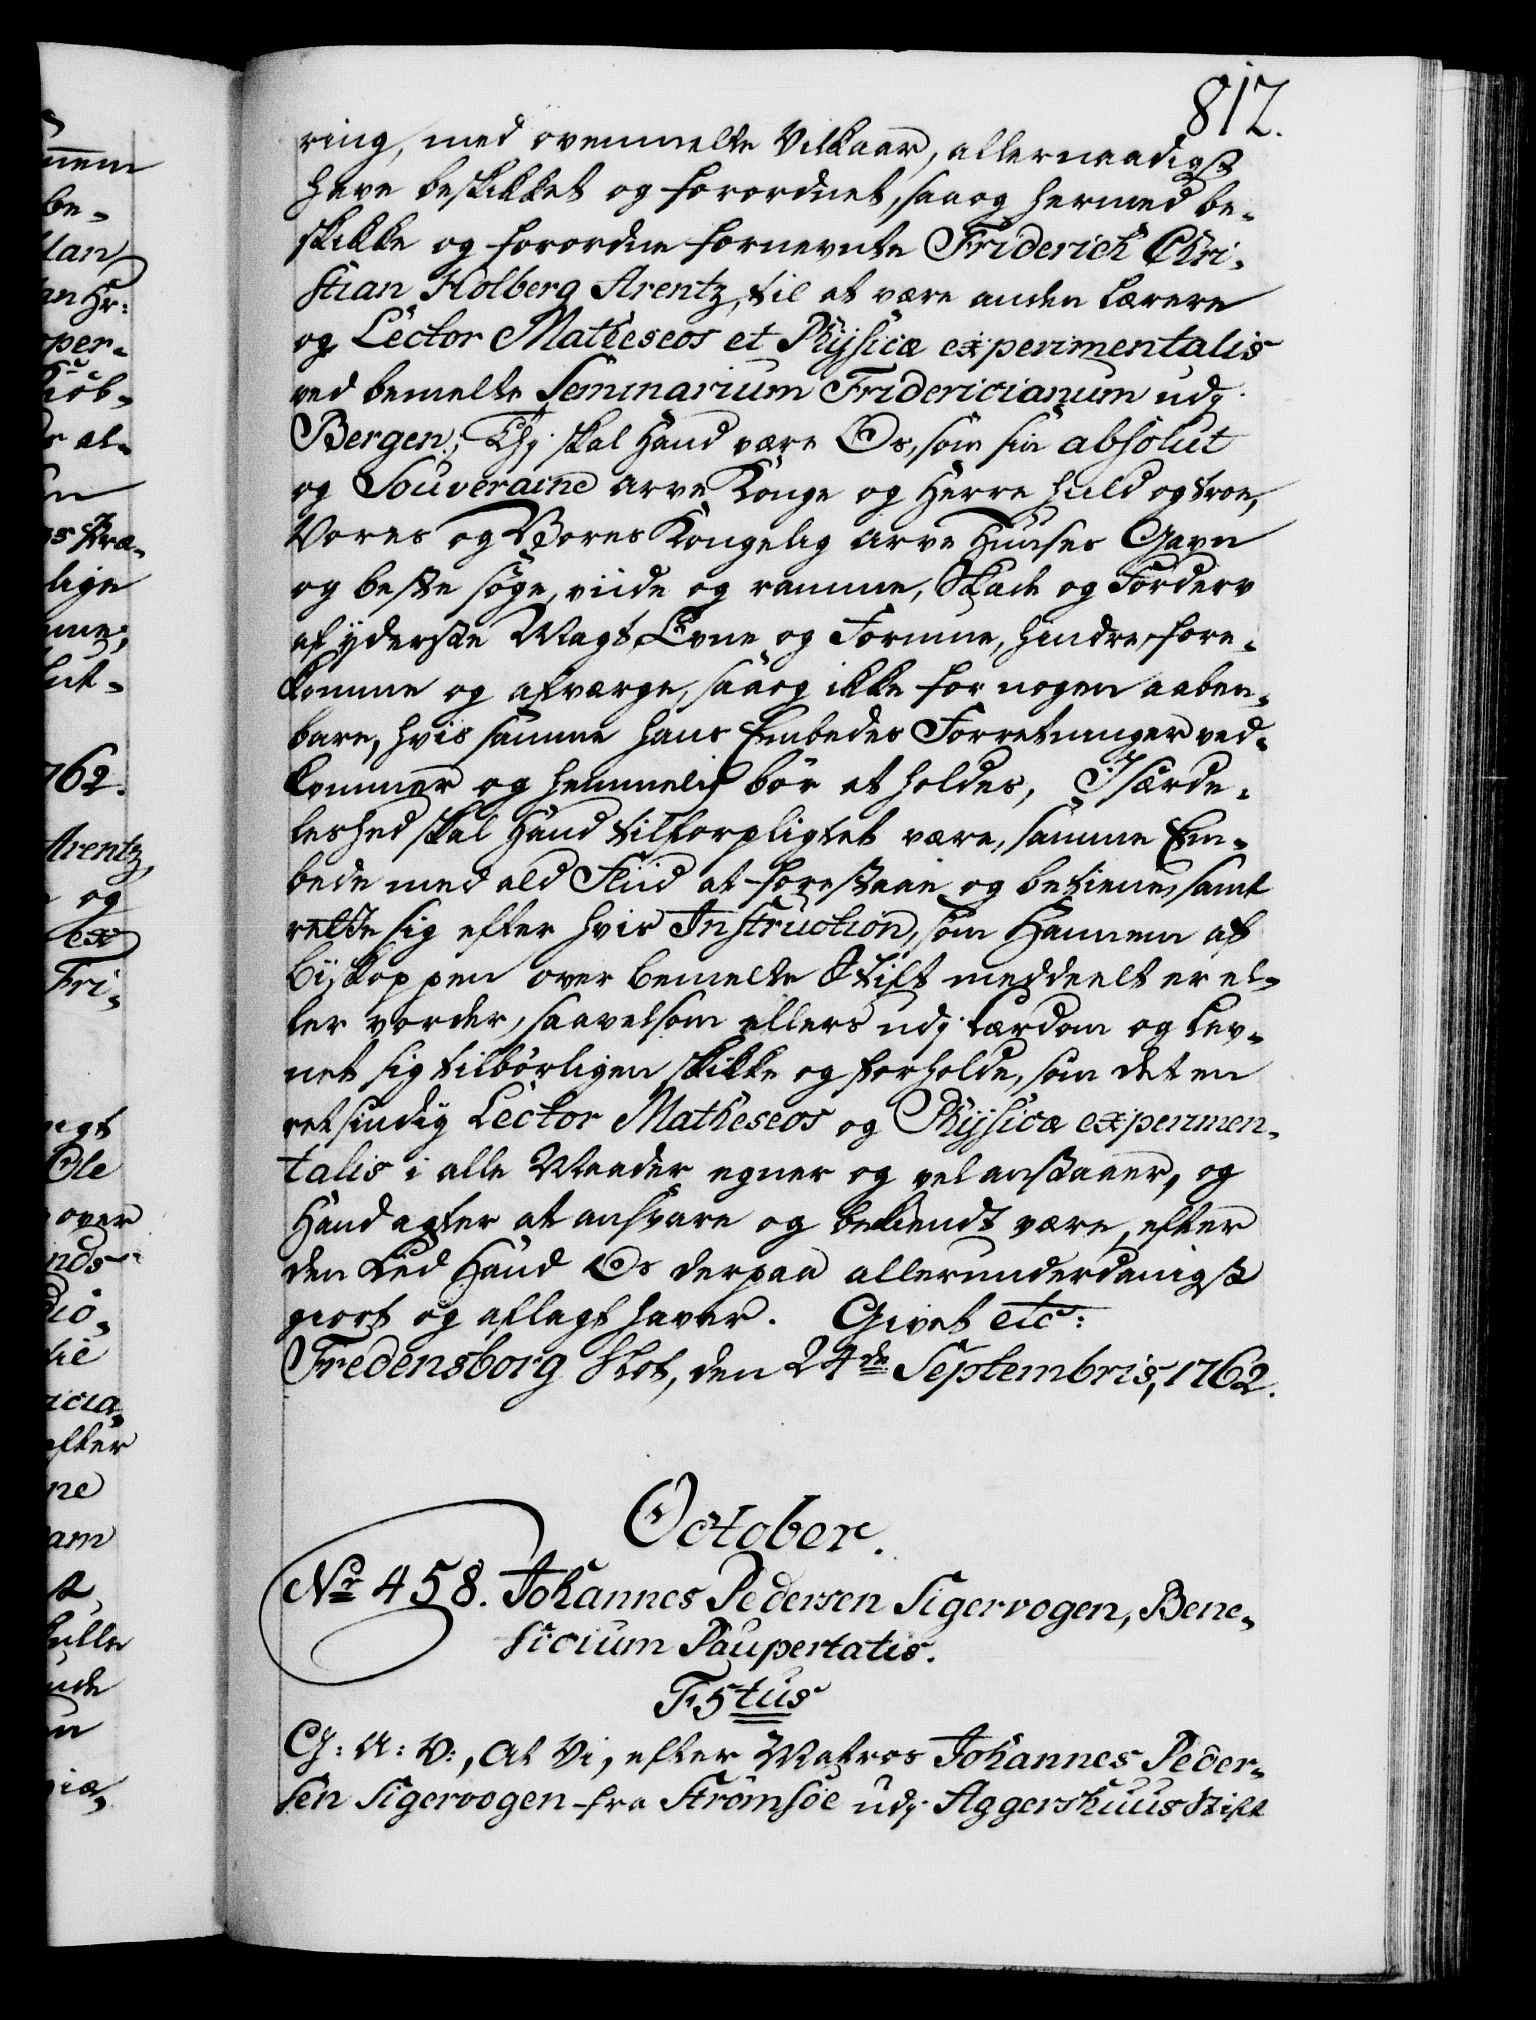 812.
ring, med ovenmelte Vilkaar, allernaadigst
have beskikket og forordnet, saa og hermed be-
skikke og forordne fornevnte Friderich Chri-
stian Holberg Arentz, til at være anden Lærere
og Lector Matheseos et Physicæ experimentalis
ved bemelte Seminarium Fridericianum udj
Bergen; Thj skal Hand være Os, som sin absolut
og Souveraine Arve Konge og Herre huld og troe,
Vores og Vores Kongelig Arve Huuses Gavn
og beste søge, viide og ramme, Skade og Forderv
af yderste Magt, Evne og Formue, hindre, fore-
komme og afværge, saa og ikke for nogen aaben-
bare, hvis samme hans Embedes Forretninger ved-
kommer og hemmelig bør at holdes, Isærde-
leshed skal Hand tilforpligtet være, samme Em-
bede med ald Fliid at forestaae og betiene, samt
rette sig efter hvis Instruction, som Hannem af
Biskoppen over bemelte Stift meddeelt er el-
ler vorder, saavelsom ellers udj Lærdom og Lev-
net sig tilbørligen skikke og forholde, som det en
retsindig Lector Matheseos og Physicæ experimen-
talis i alle Maader egner og vel anstaaer, og
Hand agter at ansvare og bekiendt være, efter
den Eed Hand Os derpaa allerunderdanigst
giort og aflagt haver. Givet etc:
Fredensborg Slot, den 24de Septembris, 1762.
October.
No 458. Johannes Pedersen Sigervogen, Bene-
ficium Paupertatis.
F 5tus
G: A: V:, At Vi, efter Matros Johannes Peder-
sen Sigervogen fra Strømsöe udj Aggershuus Stift